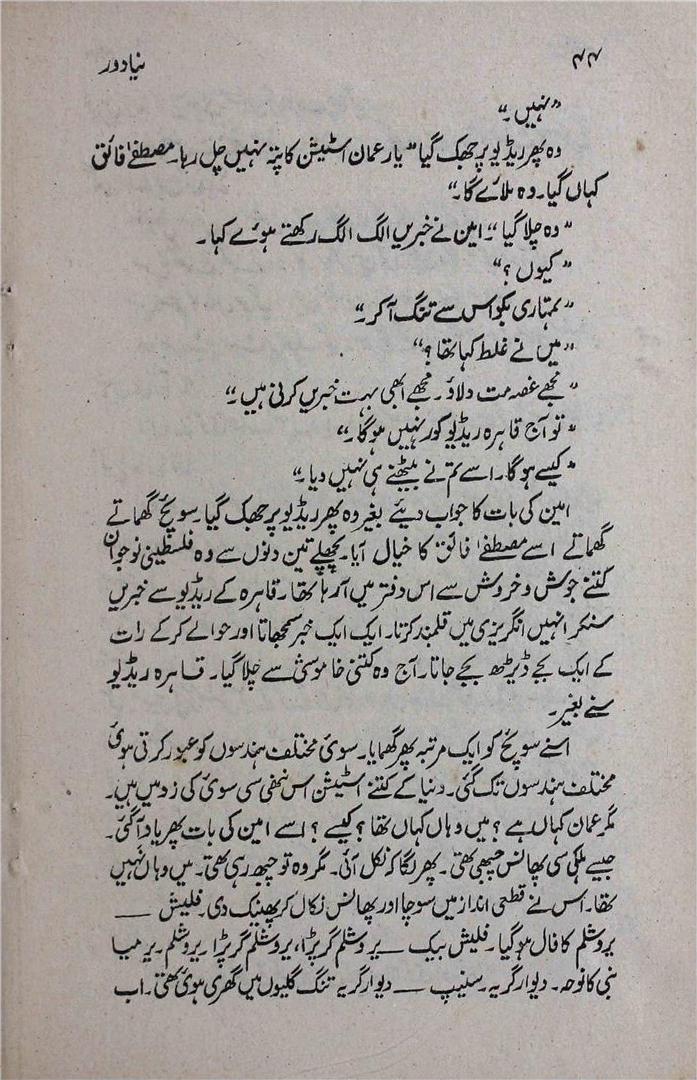 ۴۴ نیا دور
"نہیں۔"
وہ پھر ریڈیو پر جھک گیا "یار عمان اسٹیشن کا پتہ نہیں چل رہا۔ مصطفےٰ فائق
کہاں گیا۔ وہ ملائے گا۔"
"وہ چلا گیا"۔ امین نے خبریں الگ الگ رکھتے ہوئے کہا۔
"کیوں ؟"
"تمہاری بکواس سے تنگ آکر۔"
"میں نے غلط کہا تھا ؟"
"مجھے غصہ مت دلاؤ۔ مجھے ابھی بہت خبریں کرنی ہیں۔"
"تو آج قاہرہ ریڈیو کور نہیں ہوگا۔"
"کیسے ہوگا۔ اسے تم نے بیٹھنے ہی نہیں دیا۔"
امین کی بات کا جواب دیئے بغیر وہ پھر ریڈیو پر جھک گیا۔ سوئچ گھماتے
گھماتے اسے مصطفےٰ فائق کا خیال آیا۔ پچھلے تین دنوں سے وہ فلسطینی نوجوان
کتنے جوش و خروش سے اس دفتر میں آرہا تھا۔ قاہرہ کے ریڈیو سے خبریں
سنکر انہیں انگریزی میں قلمبند کرتا۔ ایک ایک خبر سمجھاتا اور حوالے کرکے رات
کے ایک بجے ڈیڑھ بجے جاتا۔ آج وہ کتنی خاموشی سے چلا گیا۔ قاہرہ ریڈیو
سنے بغیر۔
اسنے سوئچ کو ایک مرتبہ پھر گھمایا۔ سوئی مختلف ہندسوں کو عبور کرتی ہوئی
مختلف ہندسوں تک گئی۔ دنیا کے کتنے اسٹیشن اس ننھی سی سوئی کی زد میں ہیں۔
مگر عمان کہاں ہے ؟ میں وہاں کہاں تھا ؟ کیسے ؟ اسے امین کی بات پھر یاد آگئی۔
جیسے ہلکی سی پھانس چبھی تھی۔ پھر لگا کہ نکل آئی۔ مگر وہ تو چبھ رہی تھی۔ میں وہاں نہیں
تھا۔ اس نے قطعی انداز میں سوچا اور پھانس نکال کر پھینک دی۔ فلیش —
یروشلم کا فال ہوگیا۔ فلیش بیک — یروشلم گر پڑا، یروشلم گر پڑا۔ یروشلم۔ یرمیا
نبی کا نوحہ۔ دیوار گریہ۔ سنیپ — دیوار گریہ تنگ گلیوں میں گھری ہوئی تھی۔ اب